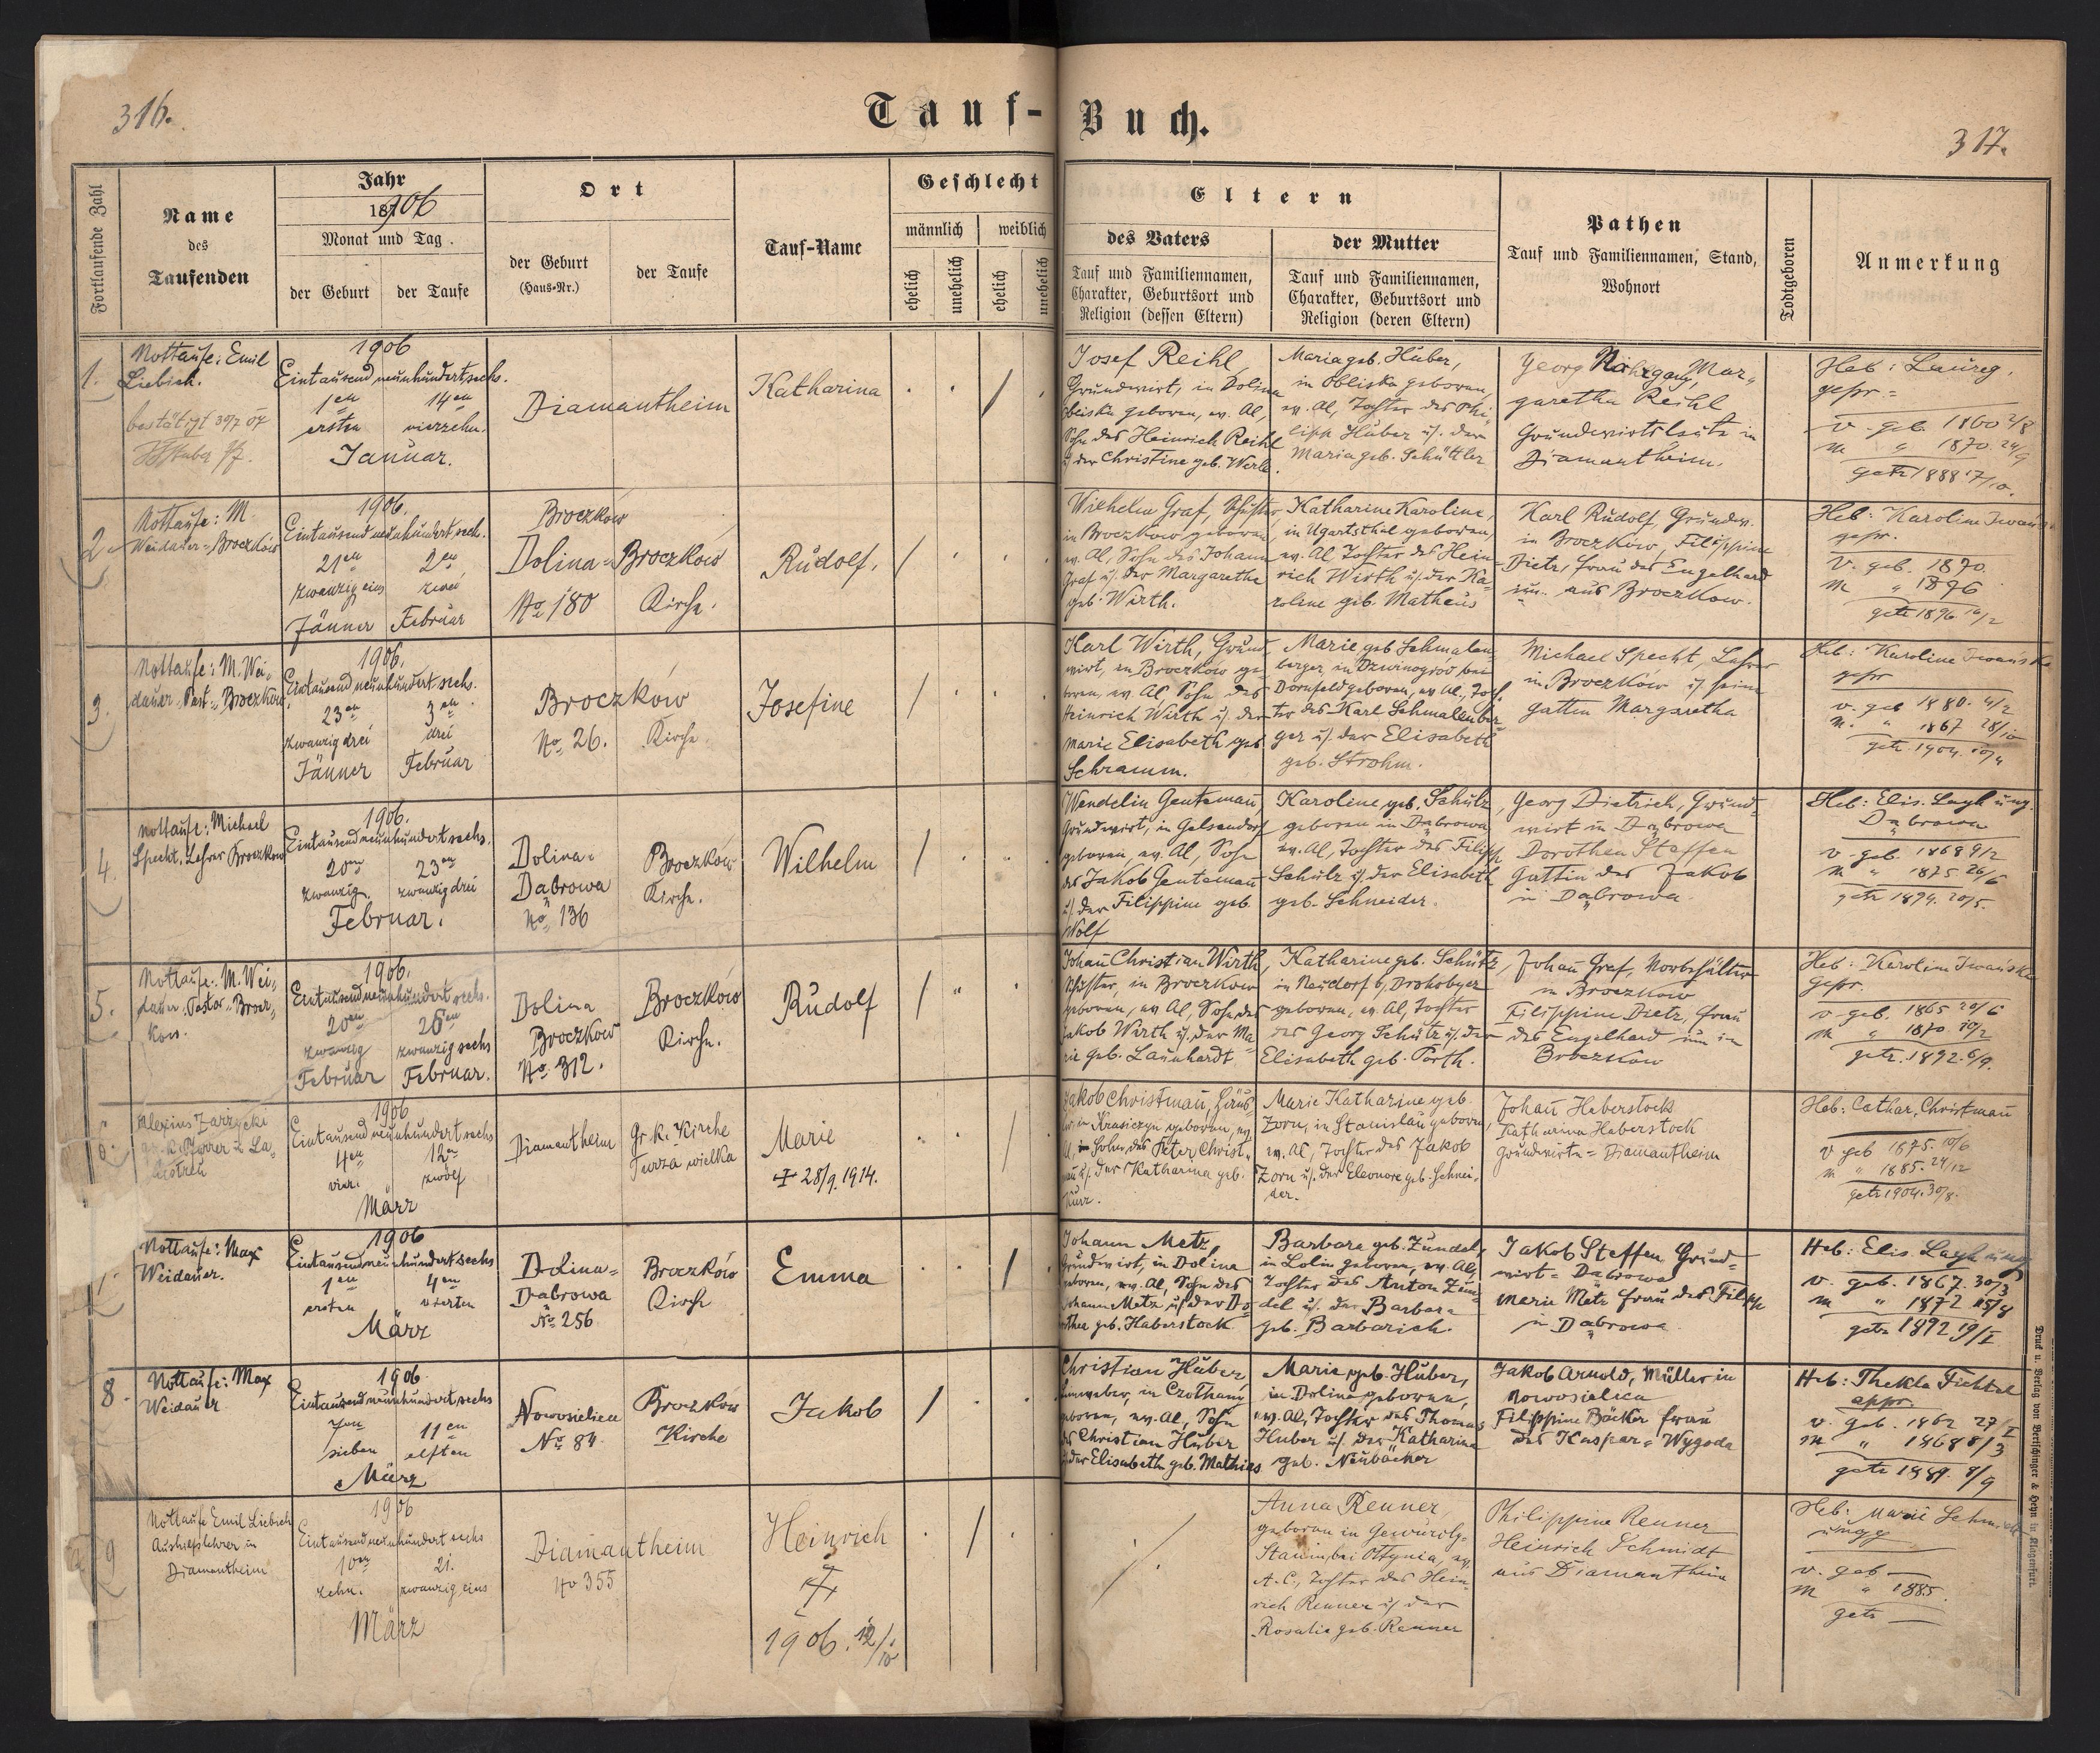 316.
Tauf-Buch.
317.
Fortlaufende Zahl
Name
des
Taufenden
Jahr
187
1906
Monat und Tag.
der Geburt
der Taufe
Ort
der Geburt
(Haus-Nr.)
der Taufe
Tauf-Name
Geschlecht
männlich
weiblich
ehelich
unehelich
ehelich
unehelich
Eltern
des Vaters
Tauf und Familiennamen,
Charakter, Geburtsort und
Religion (dessen Eltern)
der Mutter
Tauf und Familiennamen,
Charakter, Geburtsort und
Religion (deren Eltern)
Pathen
Tauf und Familiennamen, Stand,
Wohnort
Todtgeboren
Anmerkung
1.
Nottaufe: Emil
Liebich.
bestätigt 30/7 07
1906
Eintausend neunhundert sechs.
1en 14en
ersten vierzehn.
Januar.
Diamantheim
Katharina
Josef Reihl,
Grundwirt, in Dolina
geboren, ev. Al,
Sohn des Heinrich Reihl
u. der Christine geb. Werle.
Maria geb. Huber,
in Obliska geboren,
ev. Al, Tochter des Phi-
lipp Huber u. der
Maria geb. Schüttler
Georg Mar-
garetha Reihl
Grundwirtsleute in
Diamantheim.
Heb: Laureg.
gepr.
v. geb. 1860 2/8
m " 1870. 24/9
getr 1888 17/10.
2.
Nottaufe: M.
Weidauer - Broczków
1906.
Eintausend neunhundert sechs.
21en 2en
zwanzig eins zwei
Jänner Februar
Broczków
Dolina - Broczków
No 180 Kirche.
Rudolf.
Wilhelm Graf, Schuster,
in Broczkow geboren,
ev. Al, Sohn des Johann
Graf u. der Margarethe
geb. Wirth.
Katharine Karoline,
in Ugartsthal geboren,
ev. Al Tochter des Hein-
rich Wirth u. der Ka-
roline geb. Mathäus
Karl Rudolf, Grundw.
in Broczków, Filippine
Dietz, Frau des Engelhard
jun. aus Broczkow.
Heb: Karoline Iwańska
gepr.
v. geb. 1870.
m " 1876
getr 1896 16/2
3.
Nottaufe: M. Wei-
dauer Past. Broczków
1906.
Eintausend neunhundert sechs.
23en 3en
zwanzig drei drei
Jänner Februar
Broczków
No. 26. Kirche
Josefine
Karl Wirth, Grund-
wirt, in Broczkow ge-
boren, ev. Al Sohn des
Heinrich Wirth u. der
Marie Elisabeth geb.
Schramm.
Marie geb Schmalen-
berger, in Dzwinogród bei
Dornfeld geboren, ev Al., Toch-
ter des Karl Schmalenber-
ger u. der Elisabeth
geb. Strohm.
Michael Specht, Lehrer
in Broczków u. seine
Gattin Margaretha
Heb: Karoline Iwańska
gepr
v. geb 1880. 4/2
m. " 1867 28/10
getr. 1904. 10/4
4.
Nottaufe: Michael
Specht, Lehrer Broczkow
1906.
Eintausend neunhundert sechs.
20en 23en
zwanzig. zwanzig drei
Februar.
Dolina-
Dąbrowa
No 136
Broczków
Kirche.
Wilhelm
Wendelin Gentemann
Grundwirt, in Gelsendorf
geboren, ev. Al, Sohn
des Jakob Gentemann
u. der Filippine geb.
Wolf
Karoline geb. Schulz,
geboren in Dąbrowa,
ev. Al, Tochter des Filipp
Schulz u. der Elisabeth
geb. Schneider.
Georg Dietrich, Grund-
wirt in Dąbrowa
Dorothea Steffen
Gattin des Jakob
in Dąbrowa.
Heb: Elis. Layh ung.
Dąbrowa
v. geb. 1868 9/2
m " 1875 26/6
getr 1894. 20/5.
5.
Nottaufe: M. Wei-
dauer. Pastor - Brocz-
kow.
1906.
Eintausend neunhundert sechs.
20en 26en
zwanzig zwanzig sechs
Februar Februar.
Dolina
Broczków
No. 312.
Broczków
Kirche.
Rudolf
Johann Christian Wirth,
Schuster, in Broczkow
geboren, ev Al, Sohn des
Jakob Wirth u. der Ma-
rie geb. Launhardt
Katharine geb. Schütz,
in Neudorf b/ Drohobycz
geboren, ev. Al, Tochter
des Georg Schütz u. der
Elisabeth geb. Porth.
Johann Graf, Korbflechter
in Broczkow
Filippine Dietz, Frau
des Engelhard jun in
Broczkow
Heb: Karolin Iwańska
gepr.
v. geb. 1865 20/6
m " 1870 10/2
getr. 1892. 6/9.
6.
Alexius Zarzycki
gr. k. Pfarrer
1906
Eintausend neunhundert sechs
4en 12en
vier. zwölf
März
Diamantheim
Gr. k. Kirche
Turza wielka
Marie
+ 28/9. 1914.
Jakob Christmann,
in Krasiczyn geboren, ev
Al, Sohn des Peter Christ-
mann u. der Katharina geb.
Kurz.
Marie Katharine geb.
Zorn, in Stanislau geboren,
ev. Al, Tochter des Jakob
Zorn u. der Eleonore geb. Schnei-
der.
Johann Haberstock
Katharina Haberstock
Grundwirte - Diamantheim
Heb: Cathar. Christmann
v geb 1875. 10/6
m " 1885. 24/12
getr 1904. 30/8.
Nottaufe: Max
Weidauer.
1906
Eintausend neunhundert sechs
1en 4en
ersten vierten
März
Dolina-
Dąbrowa
No 256
Broczków
Kirche
Emma
Johann Metz,
Grundwirt, in Dolina
geboren, ev. Al, Sohn des
Johann Metz u. der Do-
rothea geb. Haberstock
Barbara geb. Zündel,
in Lolin geboren, ev. Al,
Tochter des Anton Zün-
del u. der Barbara
geb. Barbarich.
Jakob Steffen Grund-
wirt - Dąbrowa
Marie Metz Frau des Filipp
in Dąbrowa
Heb: Elis. Layh ung
v. geb. 1867. 30/3
m " 1872 15/8
getr 1892 19/I
8.
Nottaufe: Max
Weidauer
1906
Eintausend neunhundert sechs
7en 11en
sieben elften
März
Nowosielica
No 84.
Broczkow
Kirche
Jakob
Christian Huber,
geboren, ev. Al, Sohn
des Christian Huber
u. der Elisabeth geb. Mathias
Marie geb. Huber,
in Dolina geboren,
ev. Al, Tochter des Thomas
Huber u. der Katharina
geb. Neubäcker
Jakob Arnold, Müller in
Nowosielica
Filippine Bäcker Frau
des Kaspar - Wygoda
Heb: Thekla Fichtel
appr.
v. geb. 1862 27/I
m " 1868 8/3
getr 1889. 8/9
9
Nottaufe Emil Liebich
Aushilfslehrer in
Diamantheim
1906
Eintausend neunhundert sechs
10en 21.
zehn. zwanzig eins
März
Diamantheim
No 355
Heinrich
+
1906. 12/10
Anna Renner,
geboren in
bei Ottynia, ev.
A.C., Tochter des Hein-
rich Renner u. der
Rosalie geb. Renner
Philippine Renner
Heinrich Schmidt
aus Diamantheim
Heb: Marie
ungg
v. geb —
m " 1885.
getr —
Druck u. Verlag von Bertschinger & Heyn in Klagenfurt.